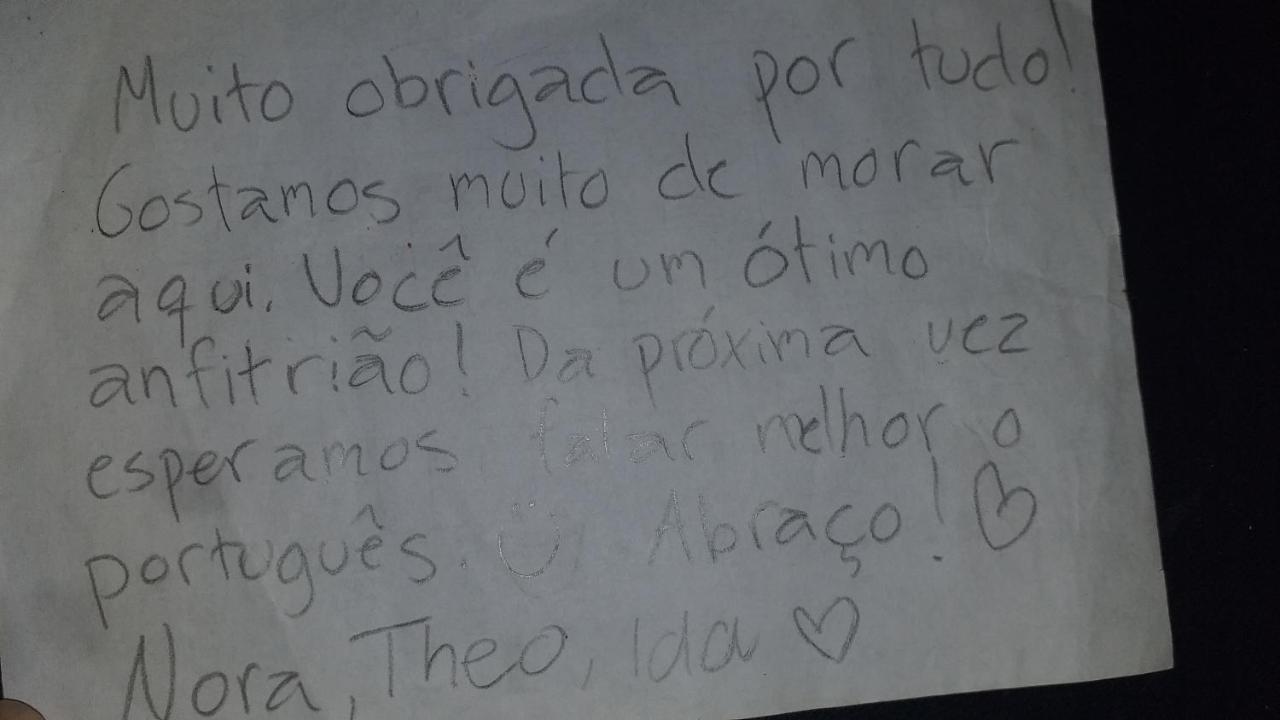 Muito obrigada por tudo!
Gostamos muito de morar
aqui. Você é um ótimo
anfitrião! Da próxima vez
esperamos falar melhor o
português. ☺ Abraço! ♡
Nora, Theo, Ida ♡